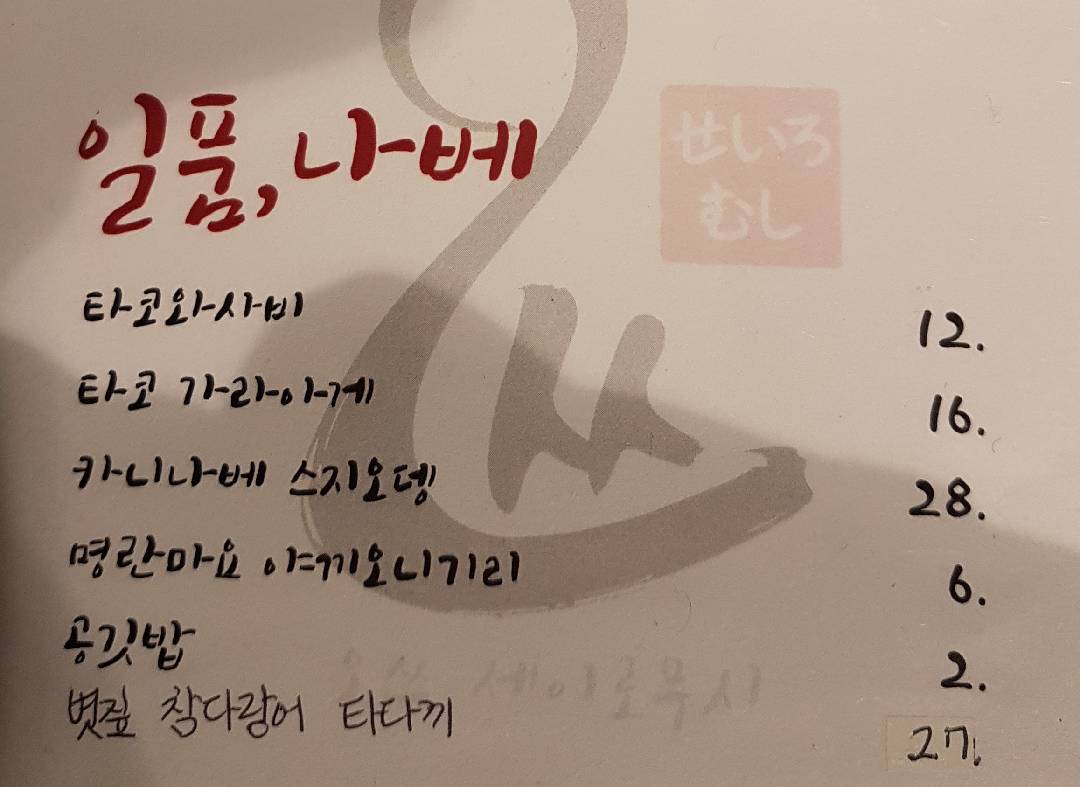 일품, 나베
せいろ
むし
타코와사비 12.
타코 가라아게 16.
카니나베 스지오뎅 28.
명란마요 야끼오니기리 6.
공깃밥 2.
볏짚 참다랑어 타타끼 27.
세이로무시